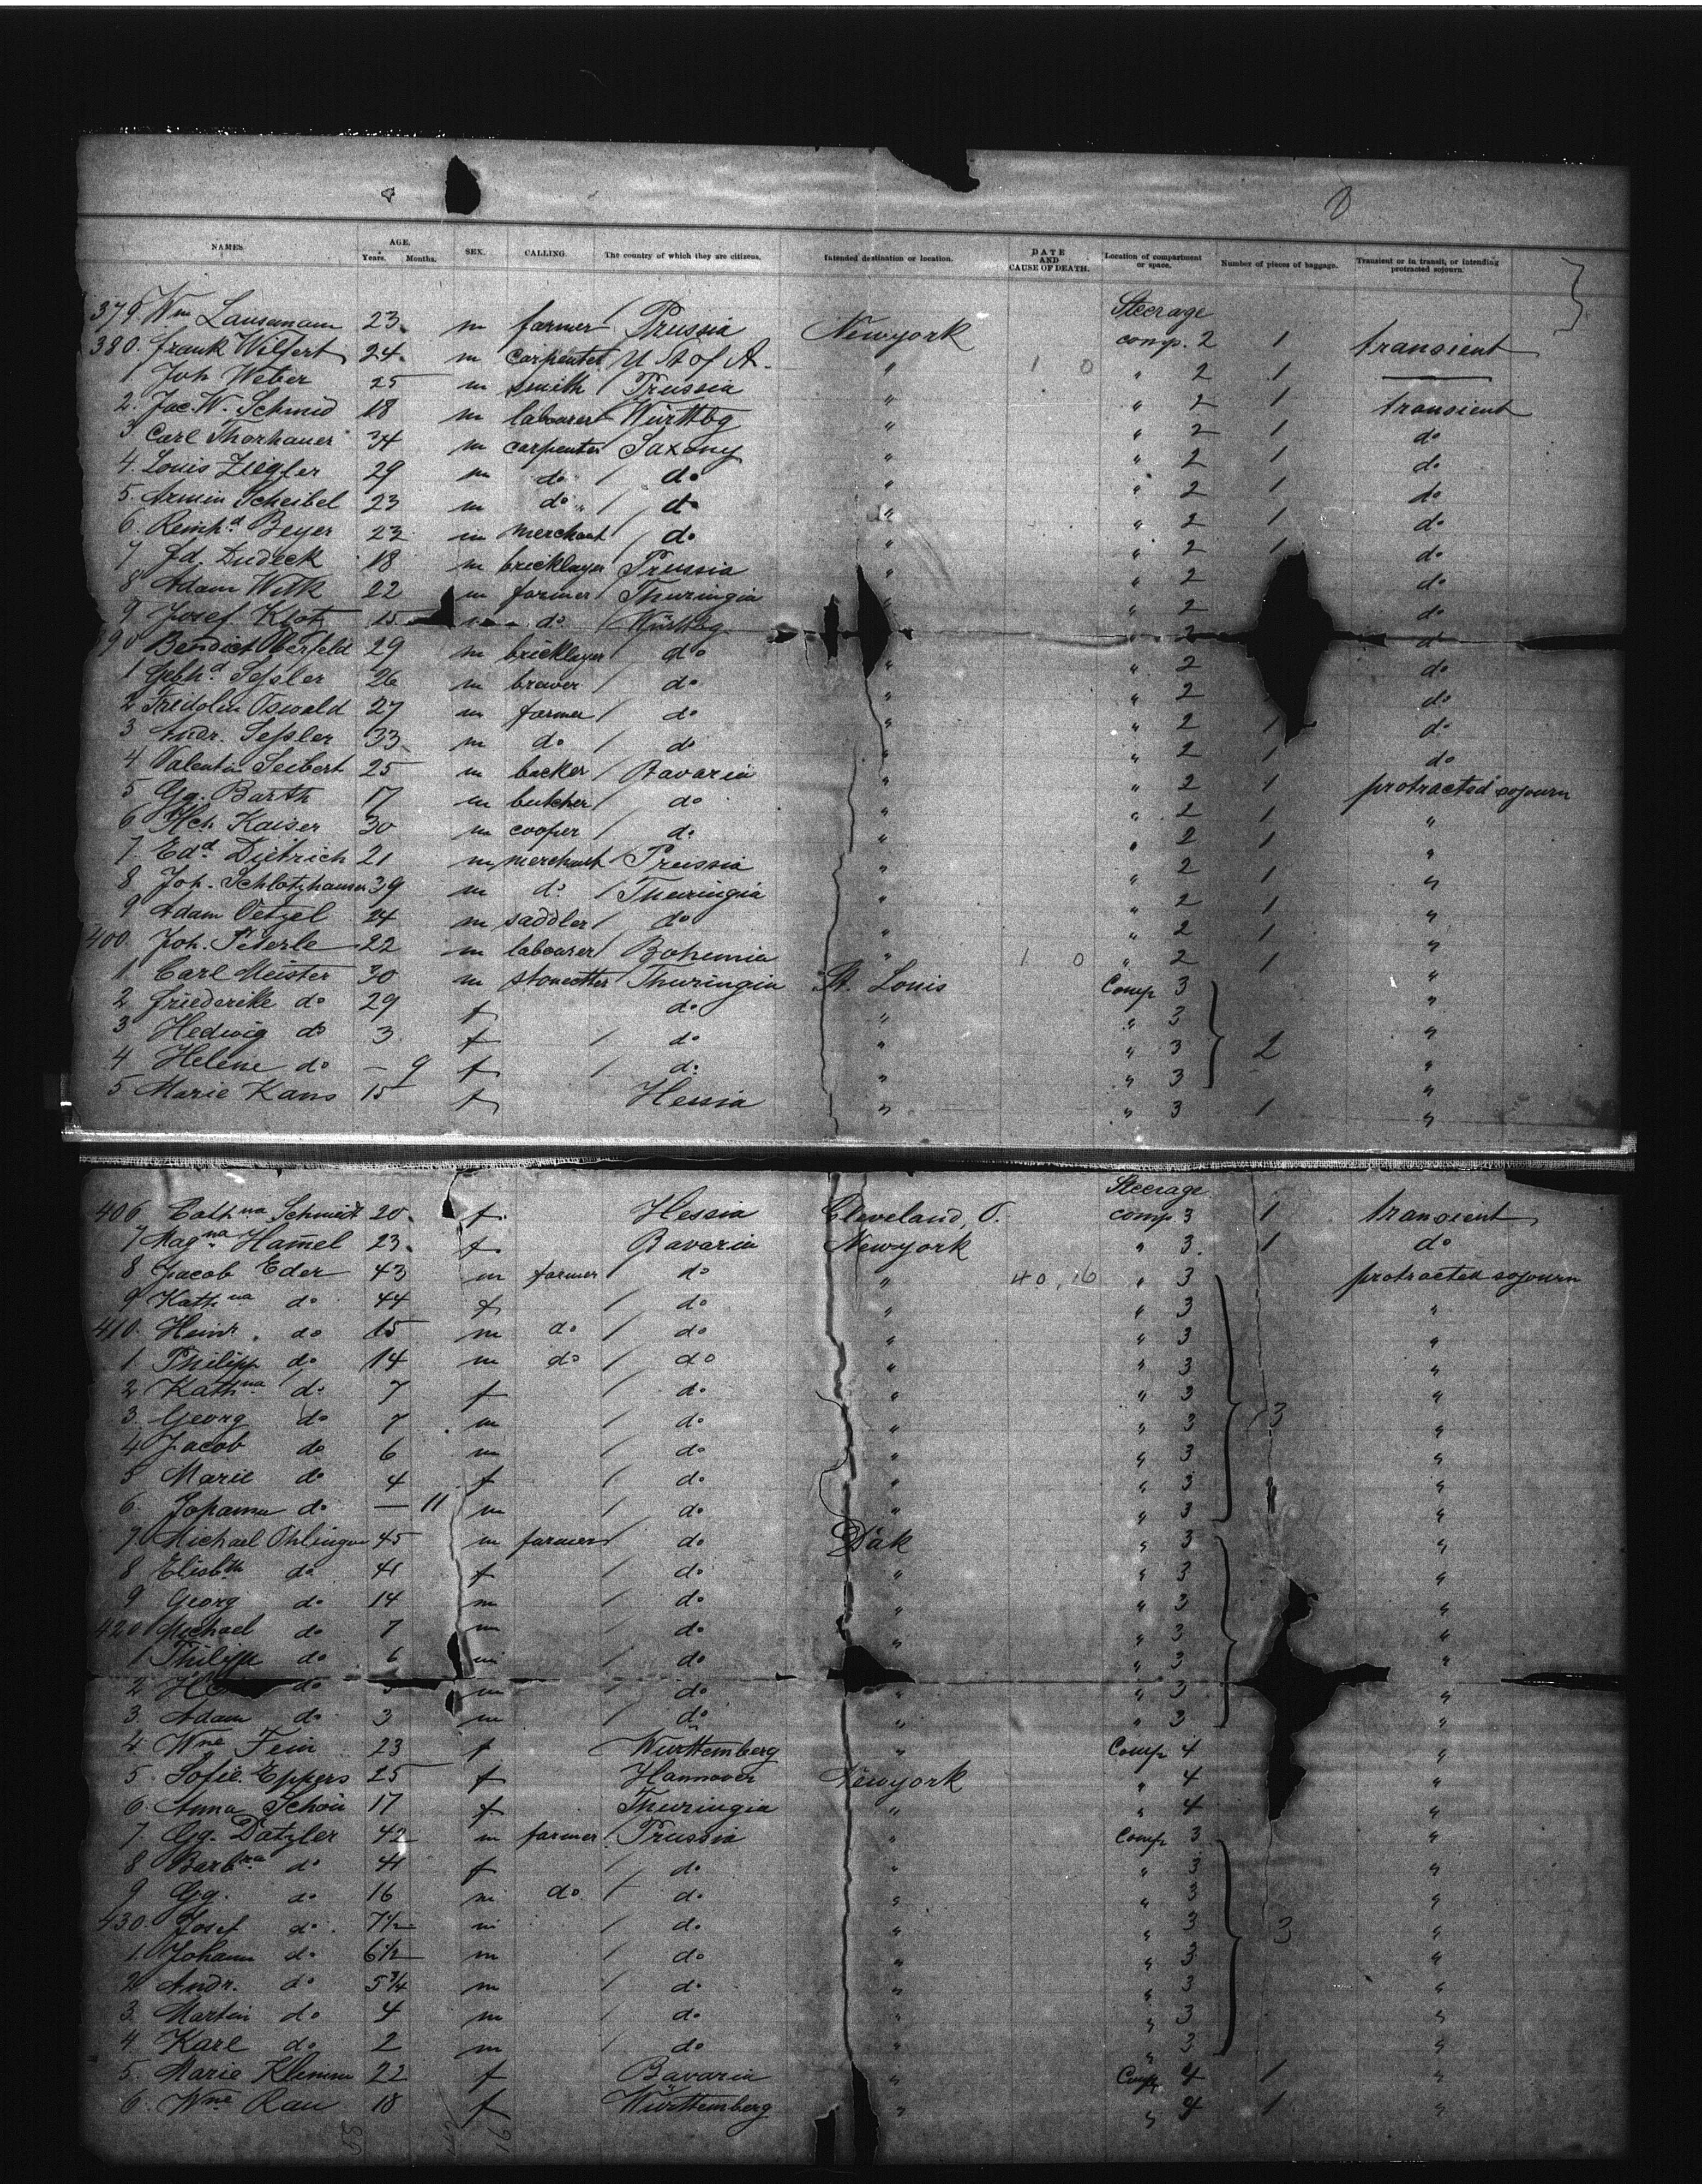 8
NAMES. AGE. Years. Months. SEX. CALLING. The country of which they are citizens. Intended destination or location. DATE AND CAUSE OF DEATH. Location of compartment or space. Number of pieces of baggage. Transient or in transit, or intending protracted sojourn.
Steerage
379. Wm Lausmann 23 m farmer / Prussia Newyork comp. 2 1 transient
380. Frank Wilfert 24 m carpenter U St of A. " 1 0 " 2 1 —
1. Joh Weber 25 m smith / Prussia " " 2 1 transient
2. Jac. W. Schmid 18 m labourer / Württbg " " 2 1 do
3 Carl Thorhauer 34 m carpenter Saxony " " 2 1 do
4. Louis Ziegler 29 m do / do " " 2 1 do
5. Armin Scheibel 23 m do " / do " " 2 1 do
6. Reinhd Beyer 23 m merchant / do " " 2 1 do
7 Ed. Dudeck 18 m bricklayer Prussia " " 2 do
8 Adam Witk 22 m farmer / Thuringia " " 2 do
9 Josef Klotz 15 m do / Württbg " 2 do
90 Bendict Oberfeld 29 m bricklayer do " " 2 do
1 Gebhd Sessler 26 m brewer / do " " 2 do
2 Fridolin Oswald 27 m farmer / do " " 2 1 do
3 Andr. Sessler 33 m do / do " " 2 1 do
4 Valentin Seibert 25 m backer / Bavaria " " 2 1 protracted sojourn
5 Gg. Barth 17 m butcher / do " " 2 1 "
6 Hch Kaiser 30 m cooper / do " " 2 1 "
7. Edd Dietrich 21 m merchant / Prussia " " 2 1 "
8 Joh. Schlotzhauer 39 m do / Thuringia " " 2 1 "
9 Adam Oetzel 24 m saddler / do " " 2 1 "
400. Joh. Peterle 22 m labourer / Bohemia " 1 0 " 2 1 "
1. Carl Meister 30 m stonecutter Thuringia St. Louis Comp 3 "
2 Friederike do 29 f do " " 3 "
3 Hedwig do 3 f / do " " 3 2 "
4 Helene do — 9 f / do " " 3 "
5 Marie Kans 15 f Hessia " " 3 1 "
Steerage
406 Cathna Schmidt 20 f Hessia Cleveland, O. comp 3 1 transient
7 Magna Ham̄el 23 f Bavaria Newyork " 3 1 do
8 Jacob Eder 43 m farmer / do " 40, 16 " 3 protracted sojourn
9 Kathna do 44 f / do " " 3 "
410. Heinr. do 15 m do / do " " 3 "
1. Philipp do 14 m do / do " " 3 "
2 Kathna do 7 f / do " " 3 "
3. Georg do 7 m / do " " 3 3 "
4 Jacob do 6 m / do " " 3 "
5 Marie do 4 f / do " " 3 "
6. Johanna do — 11 m / do " " 3 "
7 Michael Ohlinger 45 m farmer / do Dak " 3 "
8 Elisbth do 41 f / do " " 3 "
9 Georg do 14 m / do " " 3 "
420 Michael do 7 m / do " " 3 "
1 Philipp do 6 m / do " 3 "
2 do m / do " " 3 "
3. Adam do 3 m / do " " 3 "
4. Wne Fein 23 f Württemberg " Comp 4 "
5. Sofie Eppers 25 f Hannover Newyork " 4 "
6. Anna Schön 17 f Thuringia " " 4 "
7 Gg. Datzler 42 m farmer / Prussia " Comp 3 "
8 Barbra do 41 f / do " " 3 "
9 Gg. do 16 m do / do " " 3 "
430. Josef do 7½ m / do " " 3 3 "
1. Johann do 6½ m / do " " 3 "
2 Andr. do 5¾ m / do " " 3 "
3. Martin do 4 m / do " " 3 "
4. Karl do 2 m / do " " 3 "
5. Marie Klemm 22 f Bavaria " Comp 4 1 "
6. Wne Rau 18 f Württemberg " " 4 1 "